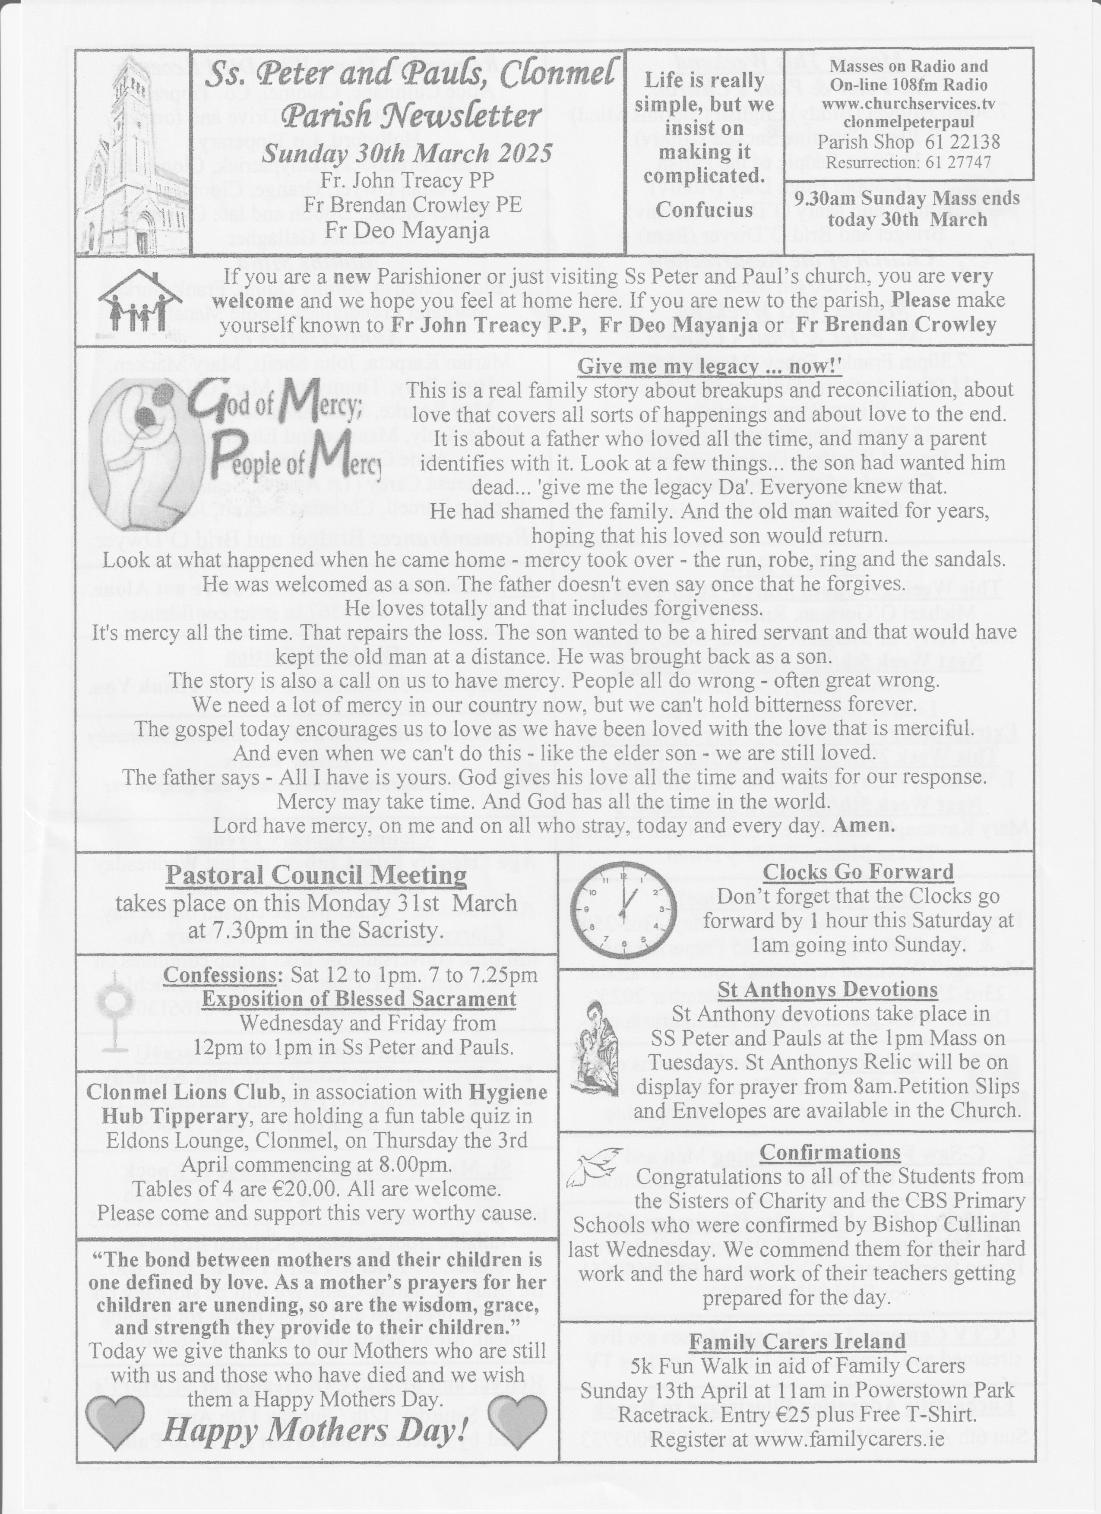 Ss. Peter and Pauls, Clonmel
Parish Newsletter
Sunday 30th March 2025
Fr. John Treacy PP
Fr Brendan Crowley PE
Fr Deo Mayanja
Life is really
simple, but we
insist on
making it
complicated.
Confucius
Masses on Radio and
On-line 108fm Radio
www.churchservices.tv
clonmelpeterpaul
Parish Shop 61 22138
Resurrection: 61 27747
9.30am Sunday Mass ends
today 30th March
If you are a new Parishioner or just visiting Ss Peter and Paul's church, you are very
welcome and we hope you feel at home here. If you are new to the parish, Please make
yourself known to Fr John Treacy P.P, Fr Deo Mayanja or Fr Brendan Crowley
God of Mercy;
People of Mercy
Give me my legacy ... now!'
This is a real family story about breakups and reconciliation, about
love that covers all sorts of happenings and about love to the end.
It is about a father who loved all the time, and many a parent
identifies with it. Look at a few things... the son had wanted him
dead... 'give me the legacy Da'. Everyone knew that.
He had shamed the family. And the old man waited for years,
hoping that his loved son would return.
Look at what happened when he came home - mercy took over - the run, robe, ring and the sandals.
He was welcomed as a son. The father doesn't even say once that he forgives.
He loves totally and that includes forgiveness.
It's mercy all the time. That repairs the loss. The son wanted to be a hired servant and that would have
kept the old man at a distance. He was brought back as a son.
The story is also a call on us to have mercy. People all do wrong - often great wrong.
We need a lot of mercy in our country now, but we can't hold bitterness forever.
The gospel today encourages us to love as we have been loved with the love that is merciful.
And even when we can't do this - like the elder son - we are still loved.
The father says - All I have is yours. God gives his love all the time and waits for our response.
Mercy may take time. And God has all the time in the world.
Lord have mercy, on me and on all who stray, today and every day. Amen.
Pastoral Council Meeting
takes place on this Monday 31st March
at 7.30pm in the Sacristy.
Confessions: Sat 12 to 1pm. 7 to 7.25pm
Exposition of Blessed Sacrament
Wednesday and Friday from
12pm to 1pm in Ss Peter and Pauls.
Clonmel Lions Club, in association with Hygiene
Hub Tipperary, are holding a fun table quiz in
Eldons Lounge, Clonmel, on Thursday the 3rd
April commencing at 8.00pm.
Tables of 4 are €20.00. All are welcome.
Please come and support this very worthy cause.
“The bond between mothers and their children is
one defined by love. As a mother's prayers for her
children are unending, so are the wisdom, grace,
and strength they provide to their children.”
Today we give thanks to our Mothers who are still
with us and those who have died and we wish
them a Happy Mothers Day.
Happy Mothers Day!
Clocks Go Forward
Don't forget that the Clocks go
forward by 1 hour this Saturday at
1am going into Sunday.
St Anthonys Devotions
St Anthony devotions take place in
SS Peter and Pauls at the 1pm Mass on
Tuesdays. St Anthonys Relic will be on
display for prayer from 8am.Petition Slips
and Envelopes are available in the Church.
Confirmations
Congratulations to all of the Students from
the Sisters of Charity and the CBS Primary
Schools who were confirmed by Bishop Cullinan
last Wednesday. We commend them for their hard
work and the hard work of their teachers getting
prepared for the day.
Family Carers Ireland
5k Fun Walk in aid of Family Carers
Sunday 13th April at 11am in Powerstown Park
Racetrack. Entry €25 plus Free T-Shirt.
Register at www.familycarers.ie